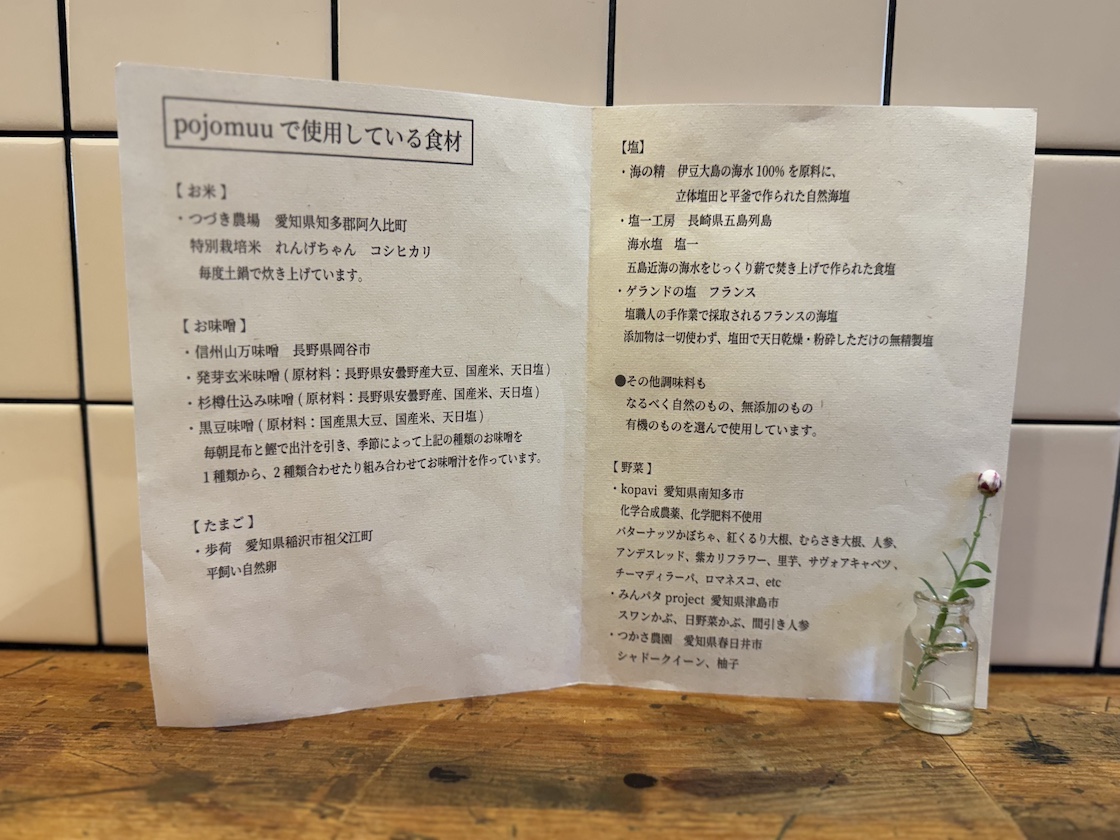 pojomuu で使用している食材
【 お米 】
・つづき農場　愛知県知多郡阿久比町
特別栽培米　れんげちゃん　コシヒカリ
毎度土鍋で炊き上げています。
【 お味噌 】
・信州山万味噌　長野県岡谷市
・発芽玄米味噌 ( 原材料：長野県安曇野産大豆、国産米、天日塩 )
・杉樽仕込み味噌 ( 原材料：長野県安曇野産、国産米、天日塩 )
・黒豆味噌 ( 原材料：国産黒大豆、国産米、天日塩 )
毎朝昆布と鰹で出汁を引き、季節によって上記の種類のお味噌を
1 種類から、2 種類合わせたり組み合わせてお味噌汁を作っています。
【 たまご 】
・歩荷　愛知県稲沢市祖父江町
平飼い自然卵
【塩】
・海の精　伊豆大島の海水 100% を原料に、
立体塩田と平釜で作られた自然海塩
・塩一工房　長崎県五島列島
海水塩　塩一
五島近海の海水をじっくり薪で焚き上げで作られた食塩
・ゲランドの塩　フランス
塩職人の手作業で採取されるフランスの海塩
添加物は一切使わず、塩田で天日乾燥・粉砕しただけの無精製塩
●その他調味料も
なるべく自然のもの、無添加のもの
有機のものを選んで使用しています。
【 野菜 】
・kopavi 愛知県南知多市
化学合成農薬、化学肥料不使用
バターナッツかぼちゃ、紅くるり大根、むらさき大根、人参、
アンデスレッド、紫カリフラワー、里芋、サヴォアキャベツ、
チーマディラーパ、ロマネスコ、etc
・みんパタ project 愛知県津島市
スワンかぶ、日野菜かぶ、間引き人参
・つかさ農園　愛知県春日井市
シャドークイーン、柚子